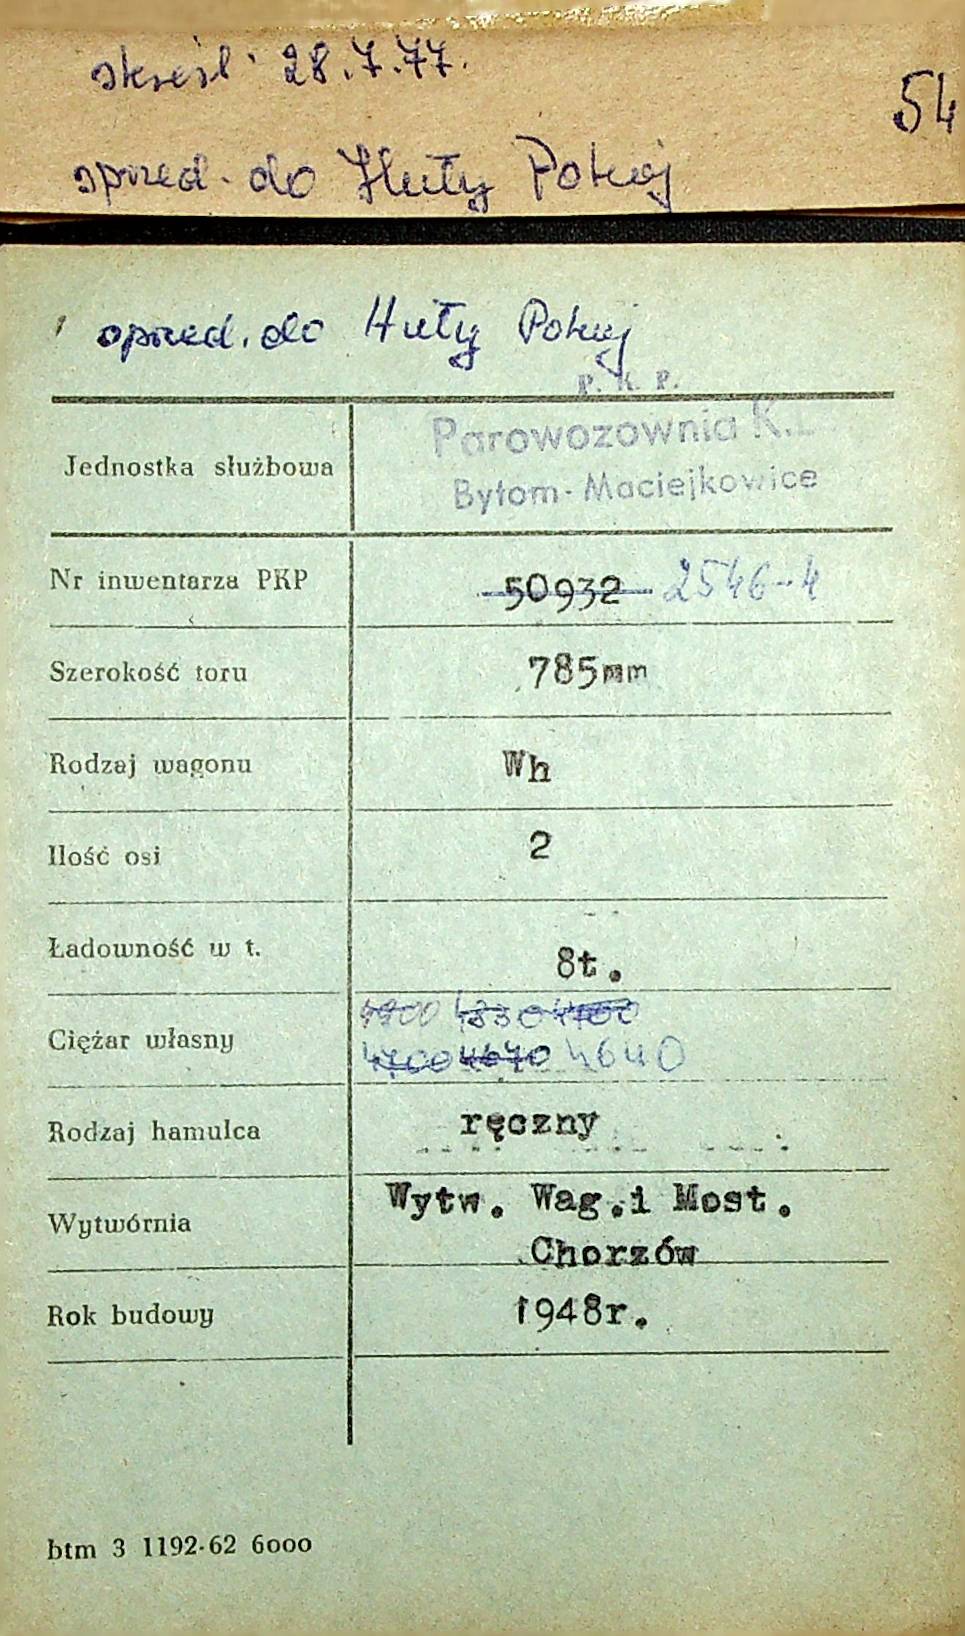 skreśl. 28.7.77.
54
sprzed. do Huty Pokój
sprzed. do Huty Pokój
P. K. P.
Jednostka służbowa Parowozownia K.D.
Bytom-Maciejkowice
Nr inwentarza PKP 50932 2546-4
Szerokość toru 785mm
Rodzaj wagonu Wh
Ilość osi 2
Ładowność w t. 8t.
4900 4330
Ciężar własny 4700 4670 4640
Rodzaj hamulca ręczny
Wytw. Wag.i Most.
Wytwórnia Chorzów
Rok budowy 1948r.
btm 3 1192-62 6000